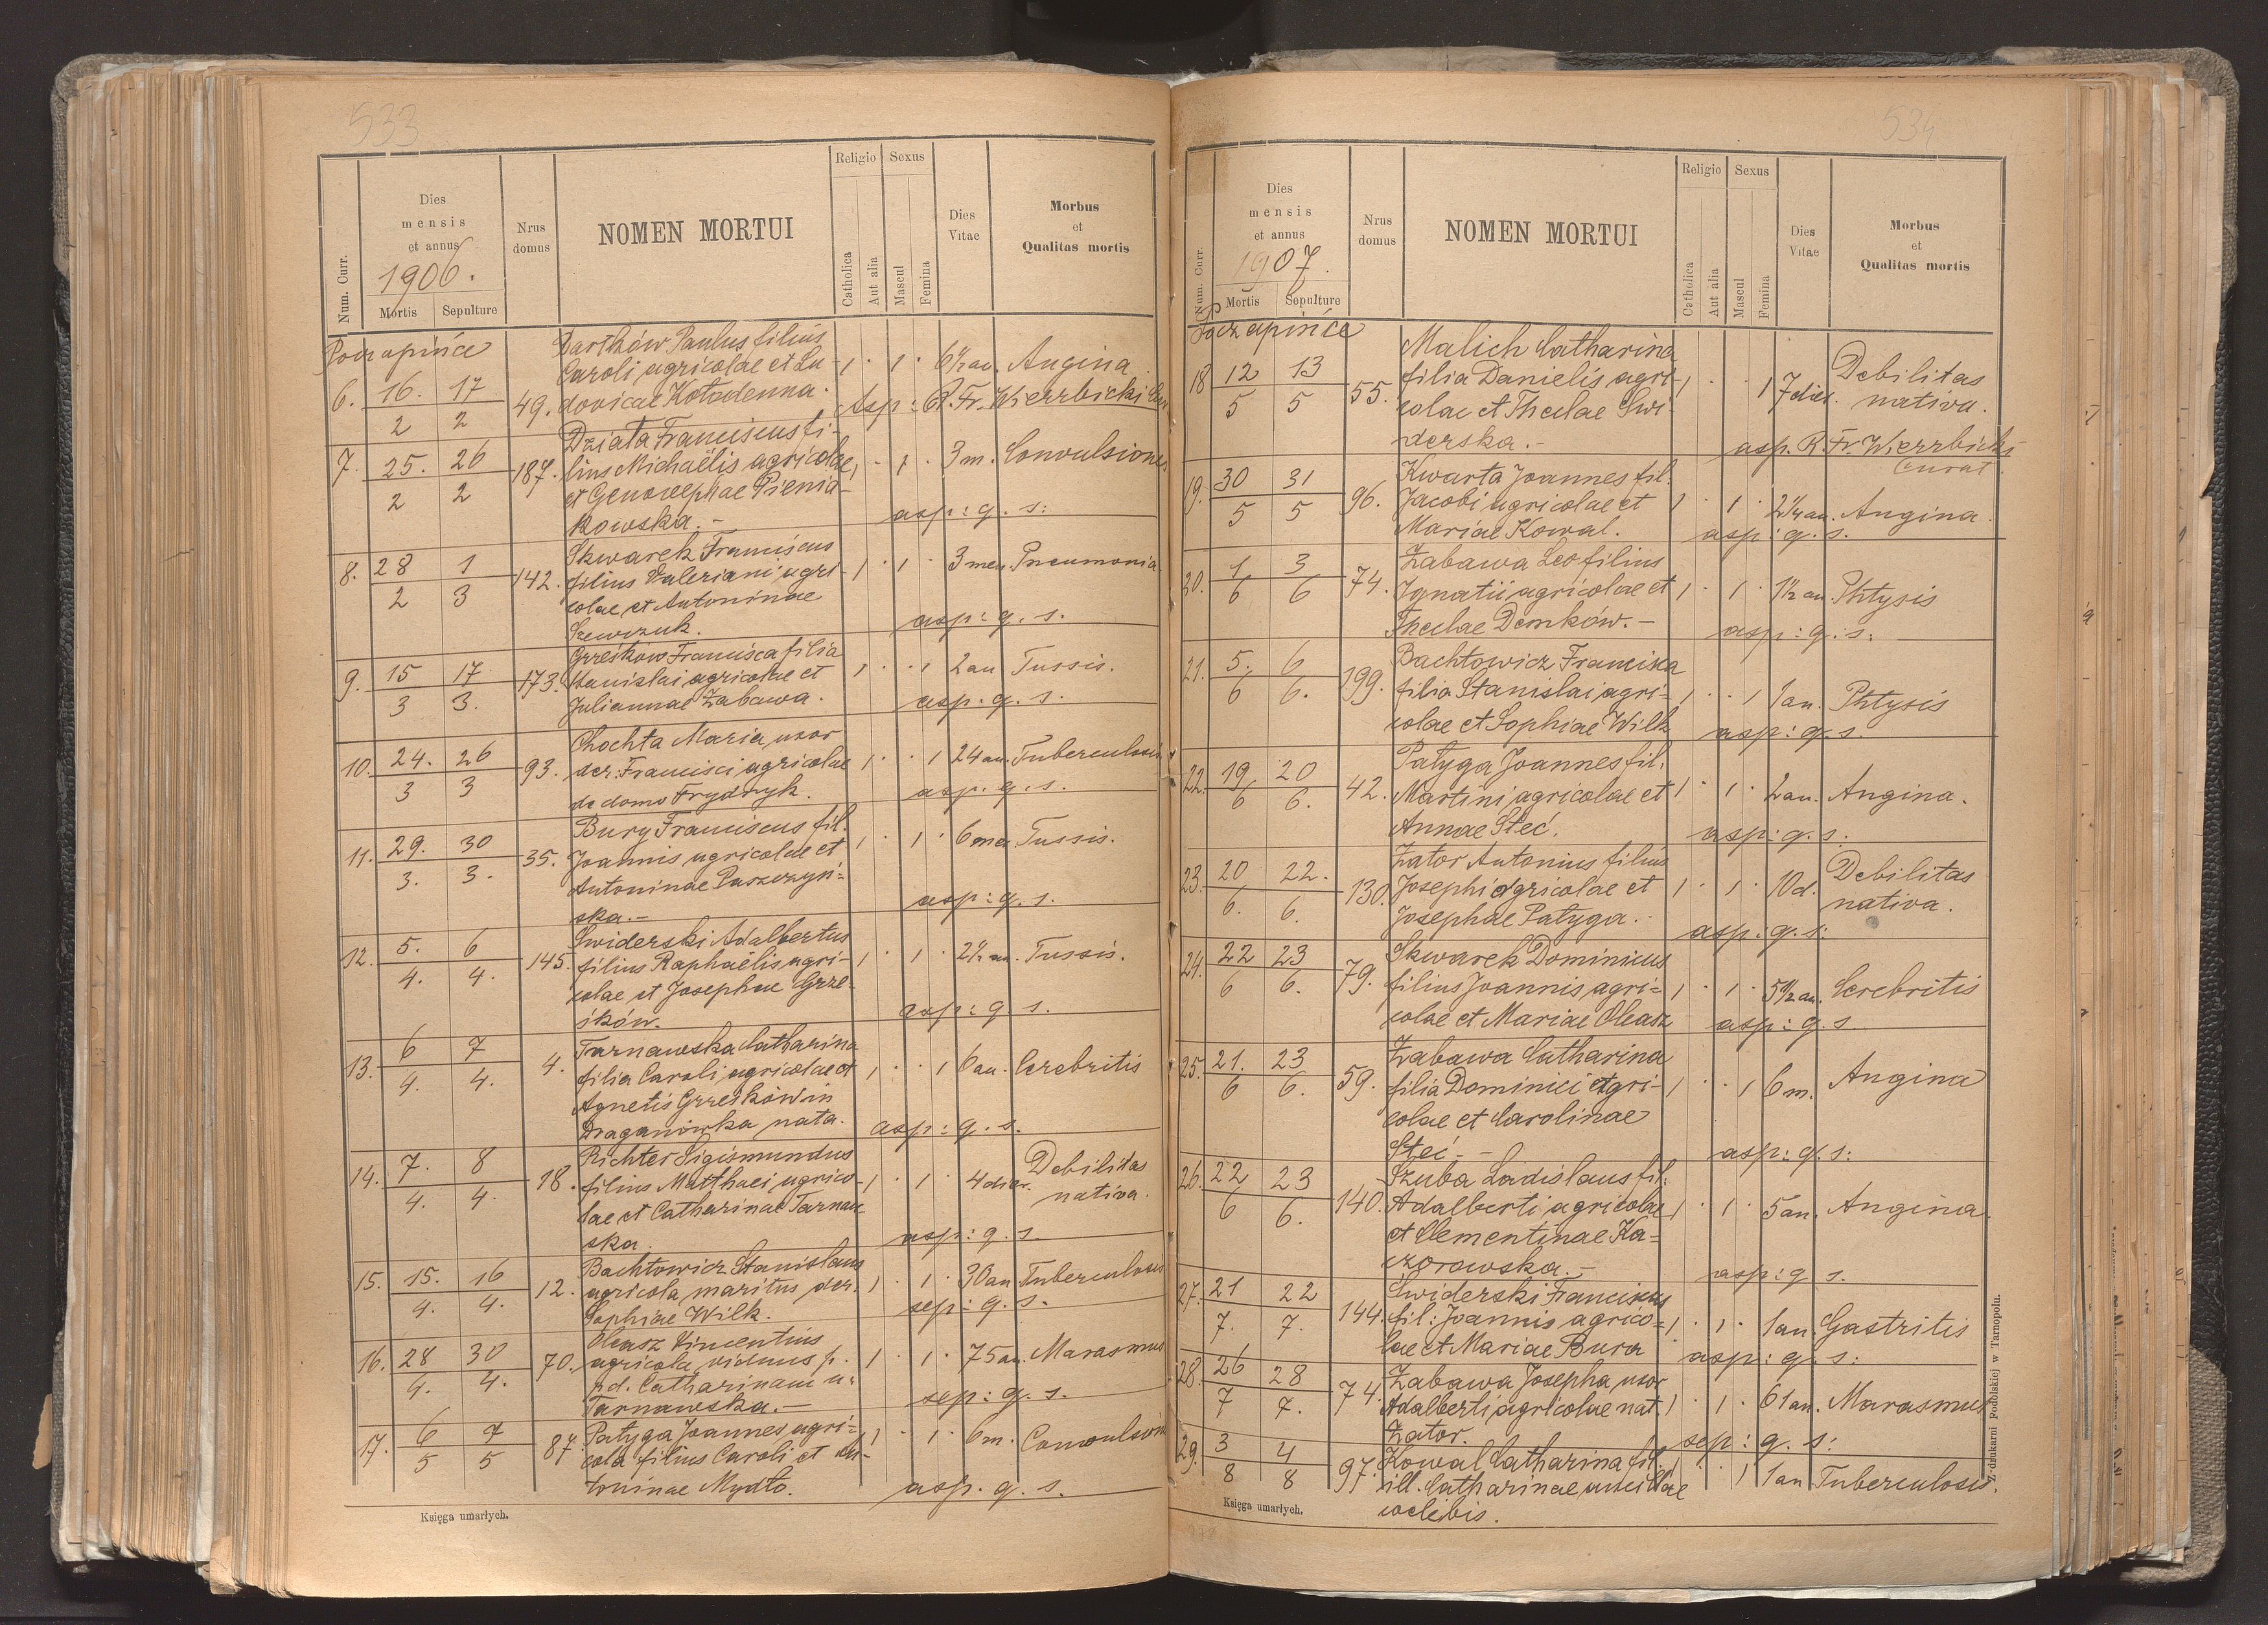 533
Num. Curr.
Dies mensis et annus
1906.
Mortis Sepulture
Nrus domus
NOMEN MORTUI
Religio
Catholica
Aut alia
Sexus
Mascul
Femina
Dies Vitae
Morbus et Qualitas mortis
Poczapińce
Bartków Paulus filius
Caroli agricolae et Lu-
6. 16. 17 2 2 49. dovicae Kołodenna. 1 · 1 · 6½ an. Angina
Asp: R. Fr. Wierzbicki
Działa Franciscus fi-
7. 25. 26 2 2 187. lius Michaëlis agricolae 1 · 1 · 3 m. Convulsiones
et Genovephae Pienia-
kowska.- asp: q. s:
Skwarek Franciscus
8. 28 1 2 3 142. filius Valeriani agri- 1 · 1 · 3 men. Pneumonia.
colae et Antoninae
Szewczuk. asp: q. s.
Grześków Francisca filia
9. 15 17 3 3. 173. Stanislai agricolae et 1 · · 1 2 an Tussis.
Juliannae Zabawa. asp: q. s.
Chochta Maria, uxor
10. 24. 26 3 3 93. der: Francisci agricolae 1 · · 1 24 an. Tuberculosis
de domo Frydryk. asp. q. s.
Bury Franciscus fil.
11. 29. 30 3. 3. 35. Joannis agricolae et 1 · 1 · 6 men Tussis.
Antoninae Paszczyń=
ska.- asp: q. s.
Swiderski Adalbertus
12. 5. 6 4. 4. 145. filius Raphaëlis agri- 1 · 1 · 2½ an. Tussis.
colae et Josephae Grze-
śków. asp: q. s.
Tarnawska Catharina
13. 6 7 4. 4. 4. filia Caroli agricolae et 1 · · 1 6 an. Cerebritis
Agnetis Grześków in
Draganówka nata. asp: q. s.
Richter Sigismundus
14. 7. 8 4. 4. 18. filius Matthaei agrico- 1 · 1 · 4 dier. Debilitas nativa.
lae et Catharinae Tarnaw
ska. asp: q. s.
Bachtowicz Stanislaus
15. 15. 16 4. 4. 12. agricola maritus der. 1 · 1 · 30 an Tuberculosis
Sophiae Wilk. sep: q. s.
Oleasz Vincentius
16. 28 30 4. 4. 70. agricola, viduus p. 1 · 1 · 75 an. Marasmus
d. Catharinam n:
Tarnawska.- sep: q. s.
17. 6 7 5 5 87. Patyga Joannes agri- 1 · 1 · 6 m. Convulsion
cola filius Caroli et An-
toninae Mydło. asp. q. s.
Księga umarłych.
534
Num. Curr.
Dies mensis et annus
1907.
Mortis Sepulture
Nrus domus
NOMEN MORTUI
Religio
Catholica
Aut alia
Sexus
Mascul
Femina
Dies Vitae
Morbus et Qualitas mortis
Poczapińce
Malich Catharina
18 12 13 5 5 55. filia Danielis agri- 1 · · 1 7 dier. Debilitas nativa.
colae et Theclae Swi-
derska.- asp. R. Fr. Wierzbicki Curat.
Kwarta Joannes fil.
19. 30 31 5 5 96. Jacobi agricolae et 1 · 1 · 2¼ an. Angina.
Mariae Kowal. asp: q. s.
Zabawa Leo filius
20. 1 3 6 6 74. Ignatii agricolae et 1 · 1 · 1½ an. Phtysis
Theclae Demków.- asp: q: s:
Bachtowicz Francisca
21. 5. 6 6 6. 199. filia Stanislai agri- 1 · · 1 1 an. Phtysis
colae et Sophiae Wilk asp: q. s
Patyga Joannes fil.
22. 19 20 6 6. 42. Martini agricolae et 1 · 1 · 2 an. Angina.
Annae Steć. asp: q. s.
Zator Antonius filius
23. 20 22. 6. 6. 130. Josephi agricolae et 1 · 1 · 10 d. Debilitas nativa.
Josephae Patyga.- asp: q. s:
Skwarek Dominicus
24. 22 23 6 6. 79. filius Joannis agri= 1 · 1 · 5½ an. Cerebritis
colae et Mariae Oleasz asp: q. s
Zabawa Catharina
25. 21. 23 6 6. 59. filia Dominici agri- 1 · · 1 6 m. Angina
colae et Carolinae
Steć.- asp: q. s:
Szuba Ladislaus fil:
26. 22 23 6 6. 140. Adalberti agricolae 1 · 1 · 5 an. Angina.
et Clementinae Ka=
czorowska.- asp: q s.
Swiderski Franciscus
27. 21 22 7. 7. 144. fil: Joannis agrico= 1 · 1 · 1 an. Gastritis
lae et Mariae Bura asp: q. s:
28. 26 28 7 7. 74. Zabawa Josepha uxor
Adalberti agricolae nat. 1 · 1 · 61 an. Marasmus
Zator. sep: q. s:
29. 3 4 8 8 97. Kowal Catharina fil.
ill. Catharinae ancillae 1 · · 1 1 an Tuberculosis.
coelibis.
Księga umarłych.
Z drukarni Podolskiej w Tarnopolu.